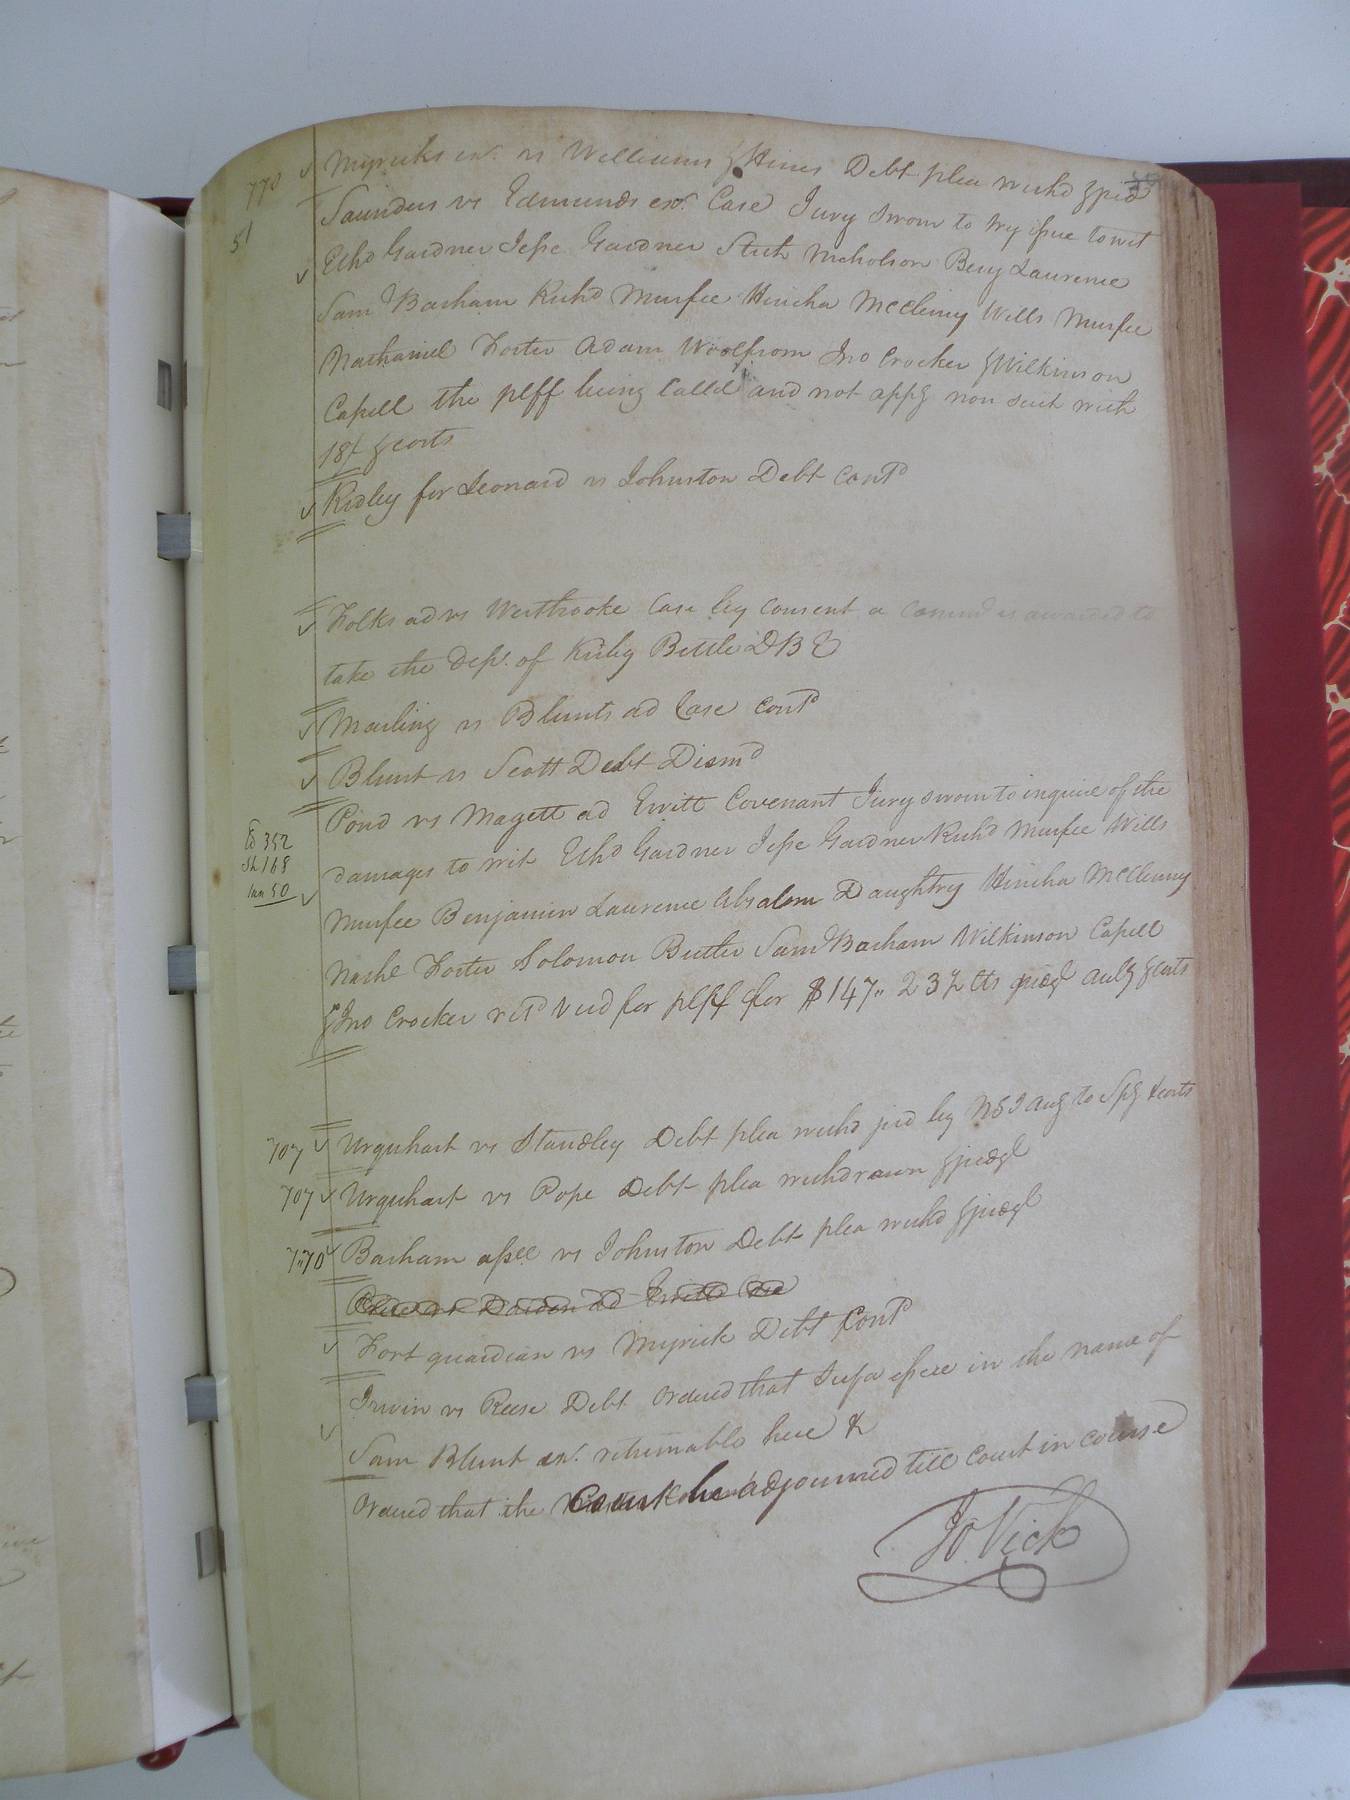 770 Myricks exr. vs Williams & Hines Debt plea withd &
51 Saunders vs Edmunds exr. Case Jury sworn to try issue towit
Ethd Gardner Jesse Gardner Nicholson Benj Laurence
Sam Barham Richd Murfee Hincha McClenny Wills Murfee
Nathaniel Foster Adam Woolfrom Jno Crocker & Wilkinson
Capell the pltff being calld and not appg non suit with
18/ & costs
Ridley for Leonard vs Johnston Debt contd
Folks ad vs Westbrooke Case by consent a commd is awarded to
take the Depn. of Kirby Bettle DB E
vs Blunts ad Case contd
Blunt vs Scott Debt Dismd
Pond vs Magett ad Ewitt Covenant Jury sworn to inquire of the
352
Sh 168
50
damages to wit Ethd Gardner Jesse Gardner Richd Murfee Wills
Murfee Benjamin Laurence Absalom Daughtry Hincha McClenny
Nathl Foster Solomon Butler Saml Barham Wilkinson Capell
& Jno Crocker retd Verd for pltff for $147.. 23½ Cts & costs
707 Urquhart vs Standley Debt plea withd by NSI to & costs
707 Urquhart vs Pope Debt plea withdrawn & judgt
770 Barham assee vs Johnston Debt plea withd & judgt
Fort guardian vs Myrick Debt Contd
Irwin vs Reese Debt Ordered that issue in the name of
Sam Blunt exr. returnable here &
Ordered that the Court be adjourned till court in course
Jo Vick